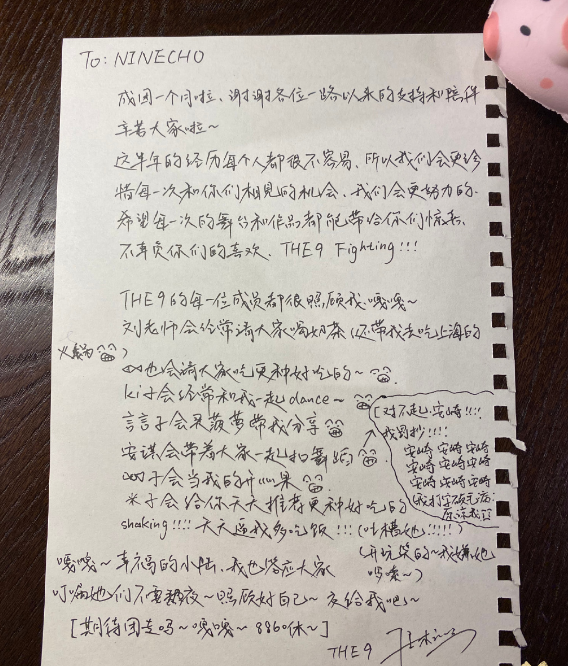 To: NINECHO
成团一个月啦、谢谢各位一路以来的支持和陪伴
辛苦大家啦~
这半年的经历每个人都很不容易、所以我们会更珍
惜每一次和你们相见的机会、我们会更努力的.
希望每一次的舞台和作品都能带给你们惊喜.
不辜负你们的喜欢. THE9 Fighting!!!
THE9的每一位成员都很照顾我.嘎嘎~
刘老师会经常请大家喝奶茶(还带我去吃上海的
火锅)
也会请大家吃更种好吃的~
ki子会经常和我一起dance~
言言子会买菠萝带我分享
安谋会带着大家一起扣舞蹈
子会当我的开心果
米子会给你天天推荐更种好吃的
shaking!!!! 天天逼我多吃饭!!! (吐槽她!!!!!)
(开玩笑的~我嫌她
[对不起.安崎!!!!
我罚抄!!!!
安崎 安崎 安崎
安崎 安崎 安崎
安崎 安崎 安崎
嘎嘎~幸福的小陆、我也答应大家
叮嘱她们不要熬夜~照顾好自己~交给我吧~
[期待团综吗~嘎嘎~8860休~]
THE9